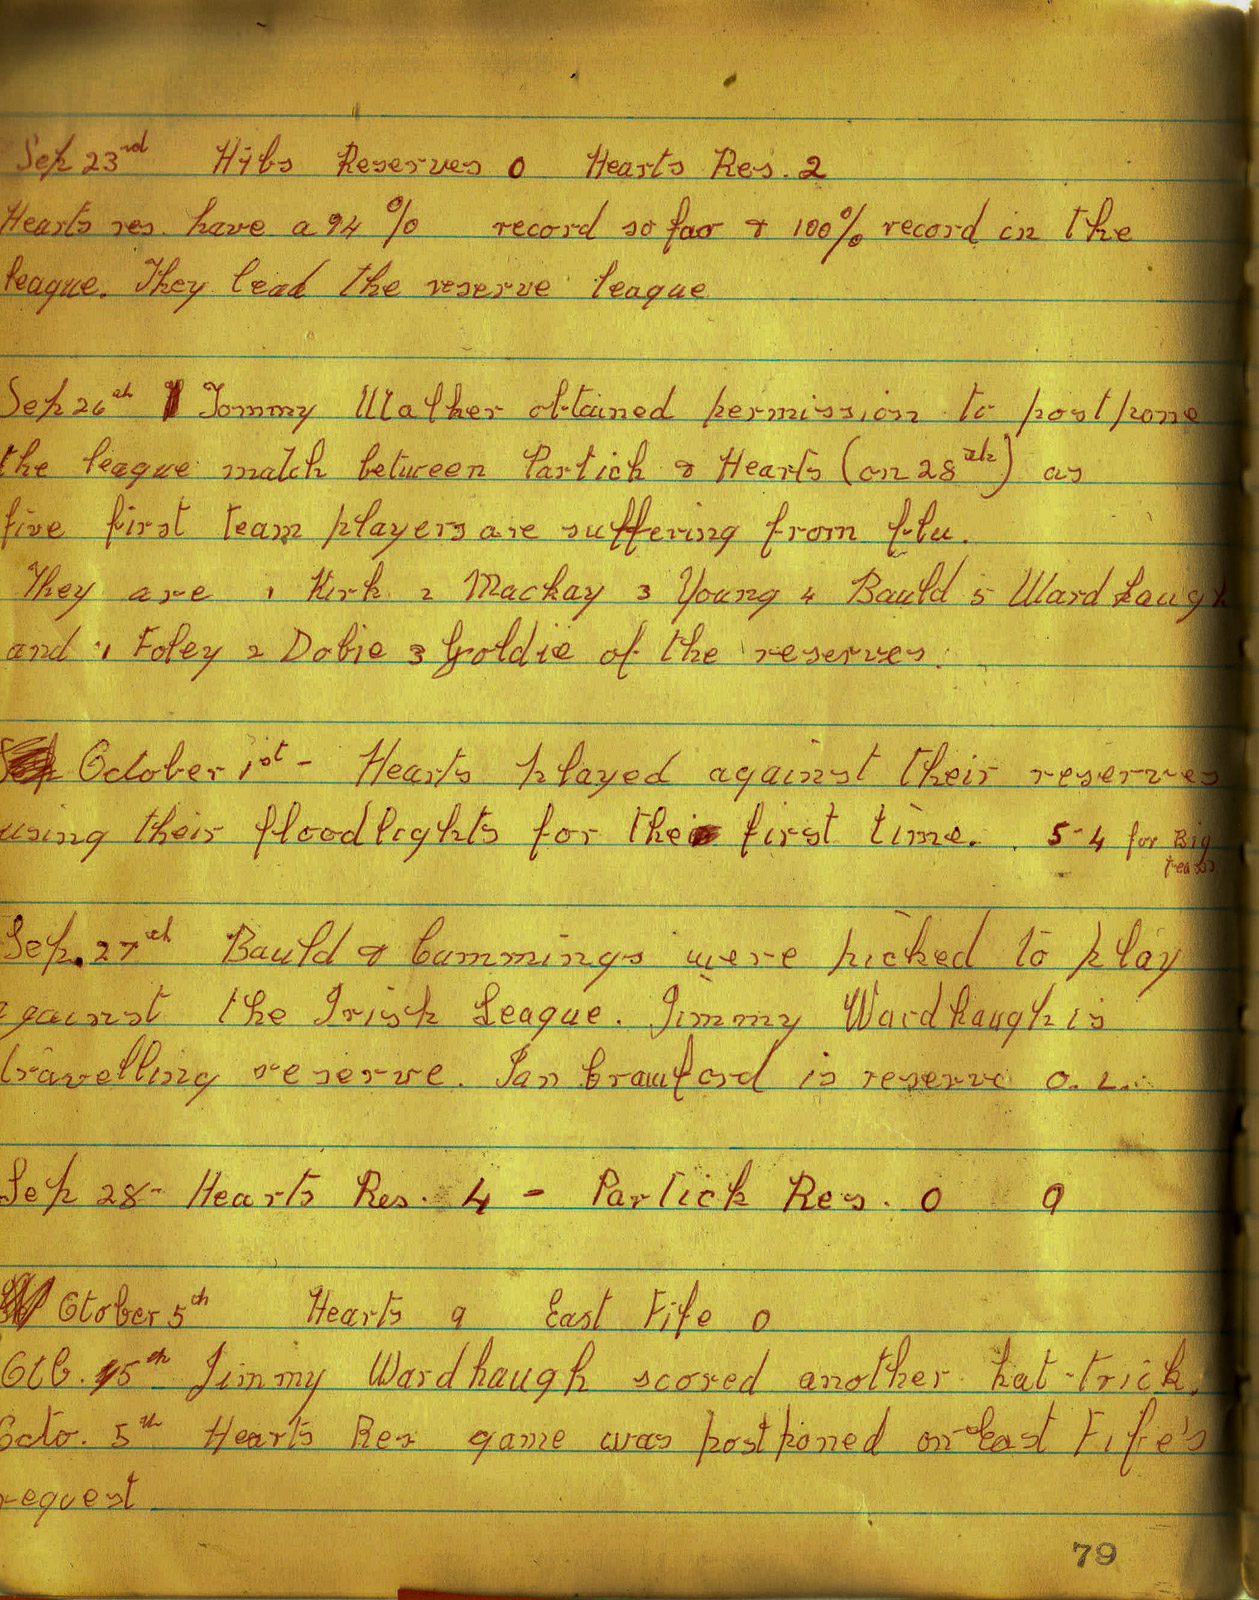 Sep 23rd Hibs Reserves 0 Hearts Res. 2
Hearts res. have a 94% record so far & 100% record in the
league. They lead the reserve league
Sep 26th Tommy Walker obtained permission to postpone
the league match between Partick & Hearts (on 28th) as
five first team players are suffering from flu.
They are 1 Kirk 2 Mackay 3 Young 4 Bauld 5 Wardhaugh
and 1 Foley 2 Dobie 3 Goldie of the reserves.
October 1st - Hearts played against their reserves
using their floodlights for the first time. 5-4 for Big
team
Sep. 27th Bauld & Cummings were picked to play
against the Irish League. Jimmy Wardhaugh is
travelling reserve. Ian Crawford is reserve O.L.
Sep 28 - Hearts Res. 4 - Partick Res. 0 9
Otober 5th Hearts 9 East Fife 0
Otb. 5th Jimmy Wardhaugh scored another hat-trick.
Octo. 5th Hearts Res game was postponed on East Fife's
request
79